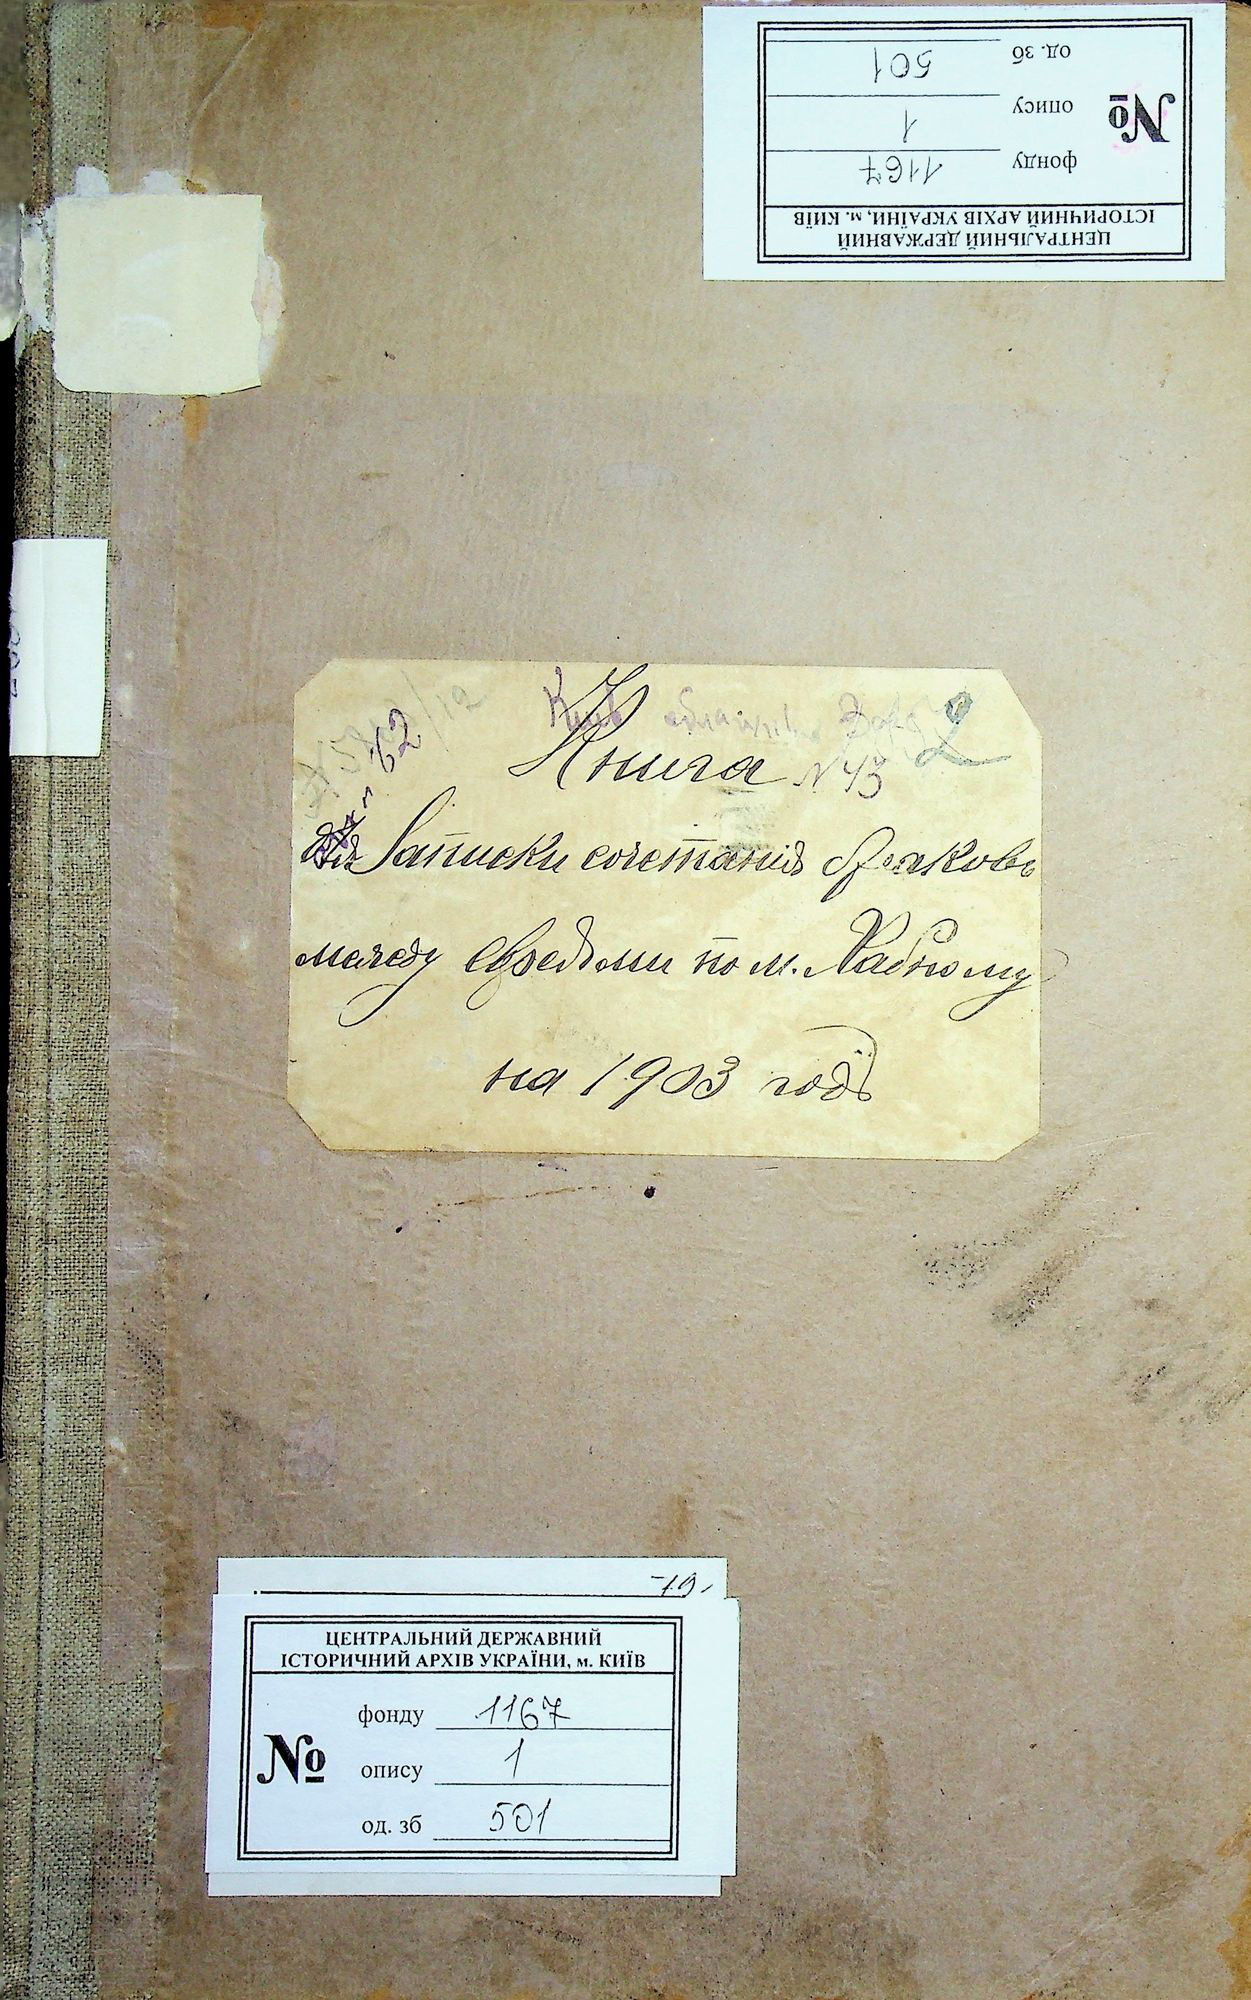 ЦЕНТРАЛЬНИЙ ДЕРЖАВНИЙ
ІСТОРИЧНИЙ АРХІВ УКРАЇНИ, м. КИЇВ
№
фонду 1167
опису 1
од. зб 501
62
2
Книга N 45
для Записки сочетанія браковъ
между евреями по м. Хабному
на 1903 годъ
19
ЦЕНТРАЛЬНИЙ ДЕРЖАВНИЙ
ІСТОРИЧНИЙ АРХІВ УКРАЇНИ, м. КИЇВ
№
фонду 1167
опису 1
од. зб 501